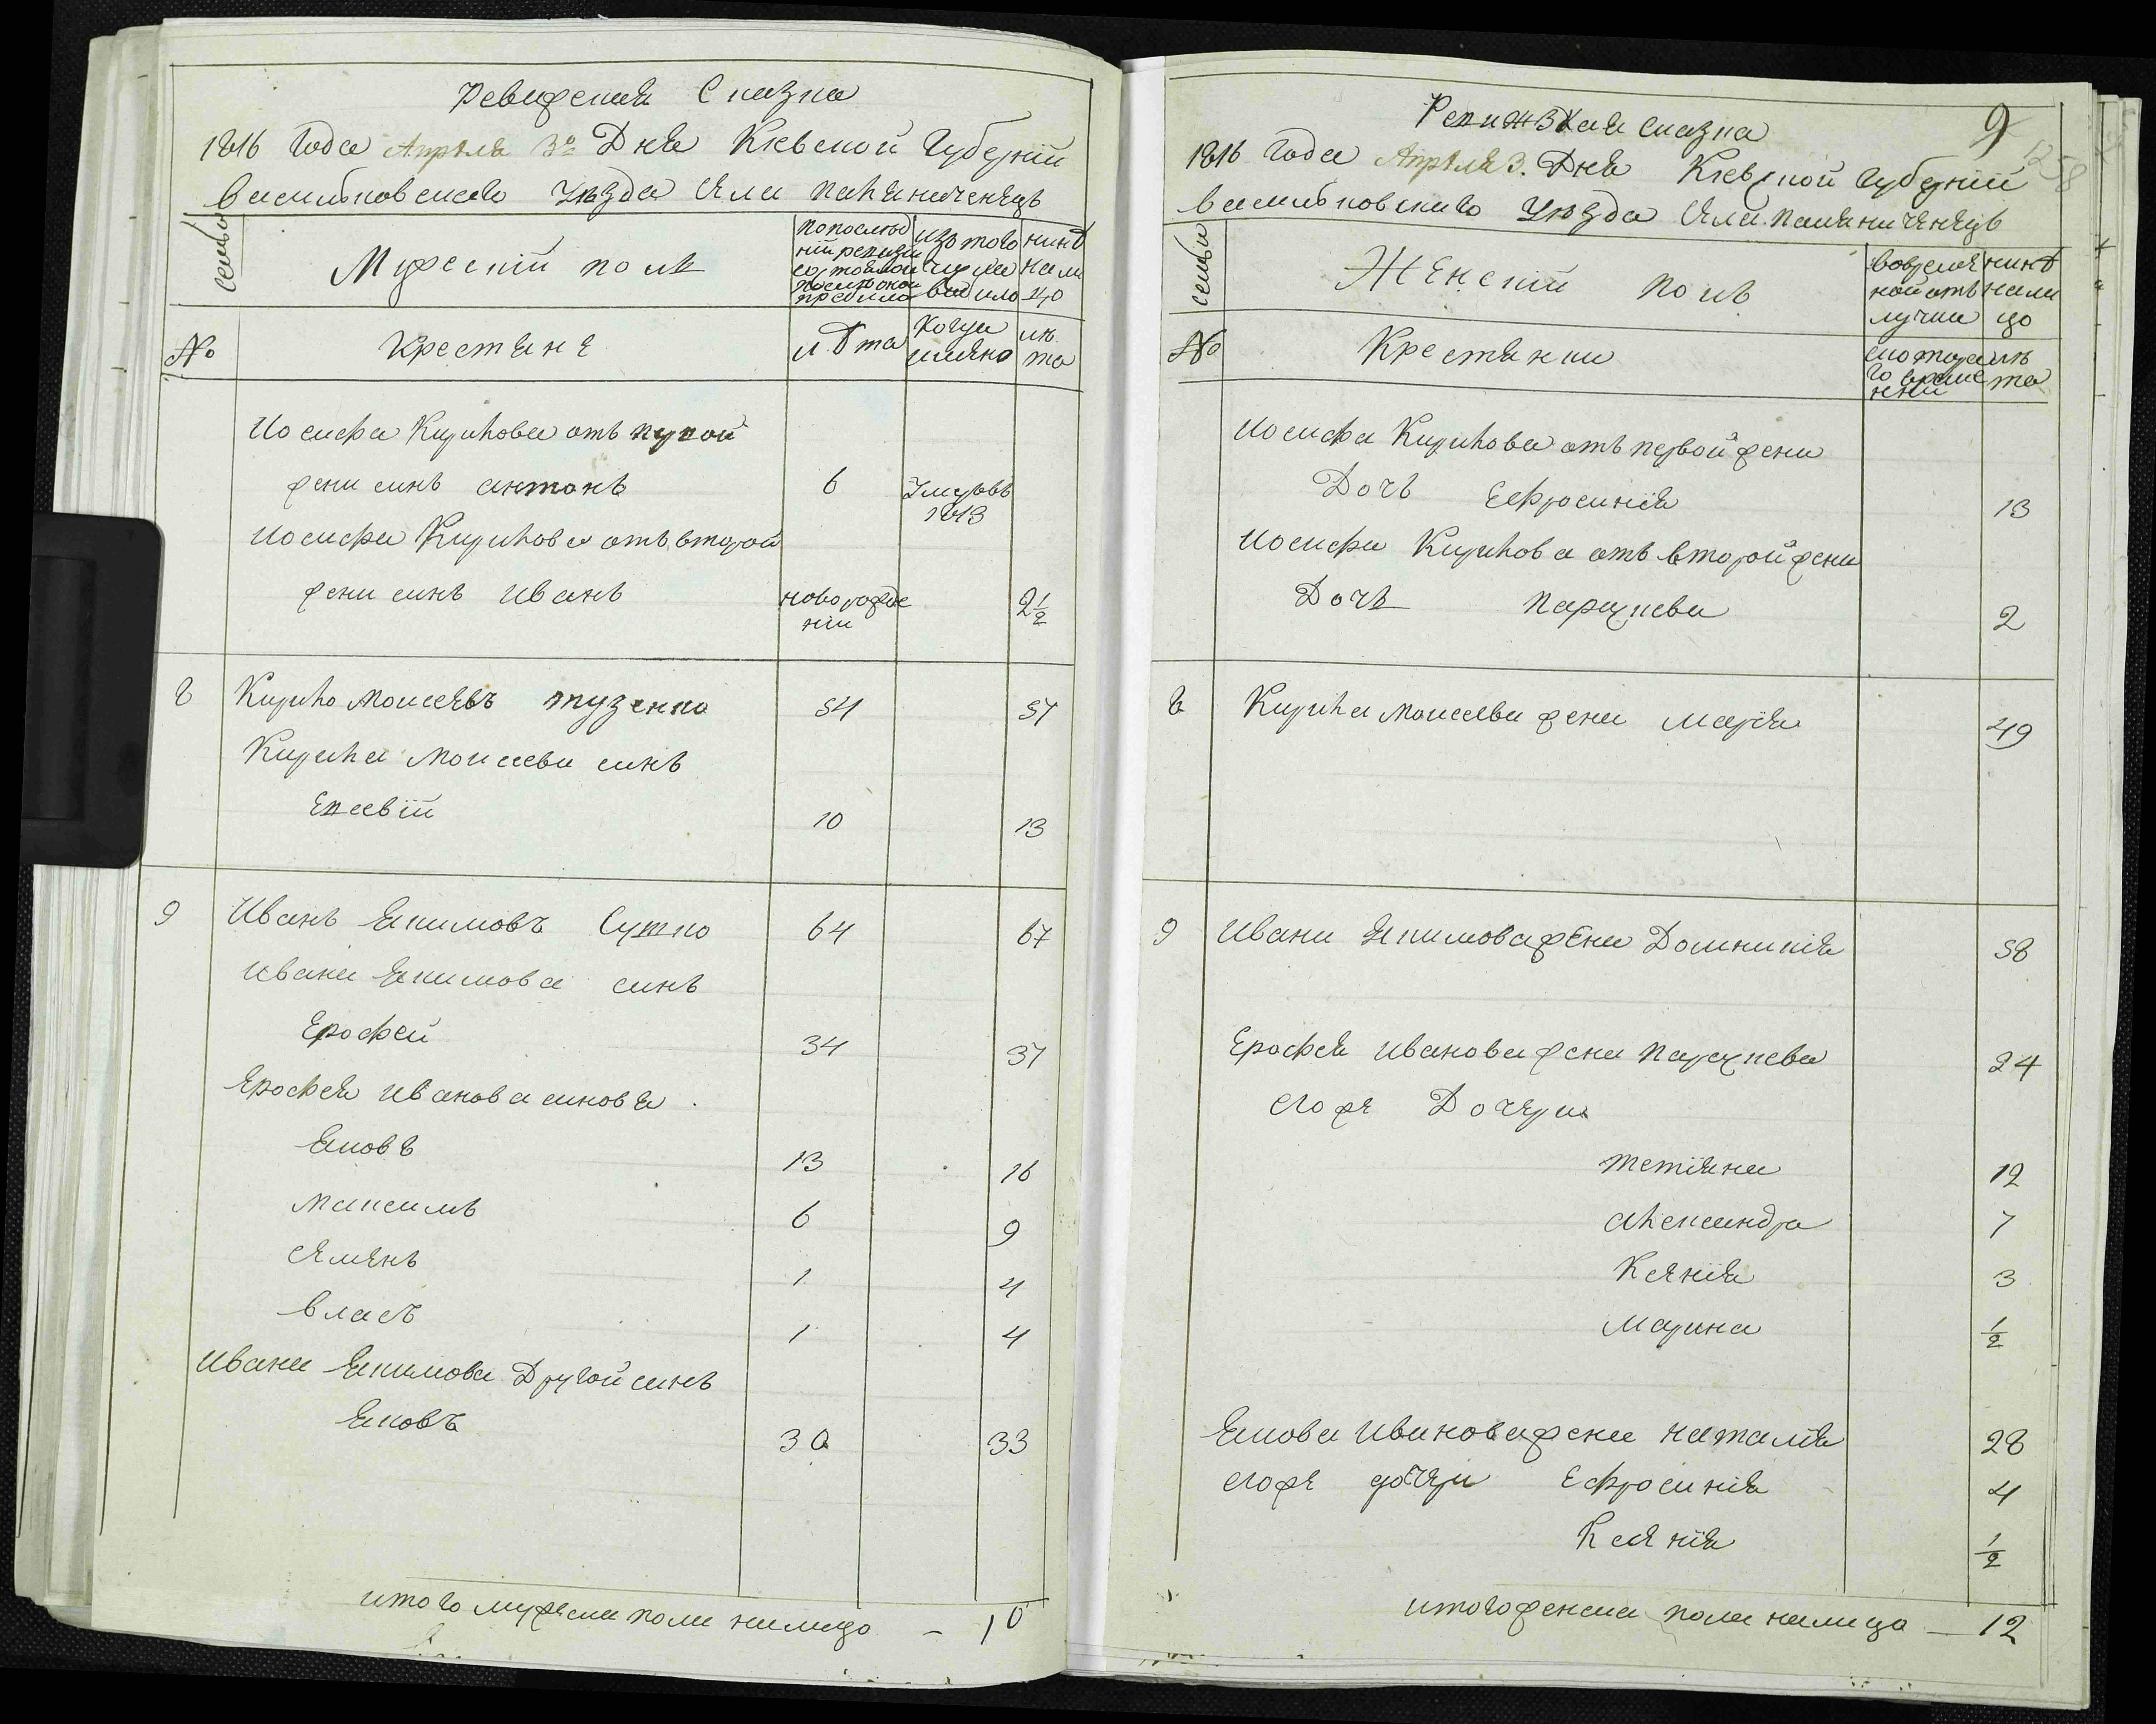 Ревизская Сказка
1816 Года Апреля 3º Дня Киевской Губернїи
Василковского Уезда села паляниченецъ
семьи
Мужескїй полъ
по послед
ней ревизїи
состояло и
после оной
прибило
изтого
числа
вибило
нине
нали
цо
№
Крестяне
лета
Когда
имяно
ле
та
Иосифа Кирилова отъ первой
жени синъ антонъ 6 Умеръвъ 1813
Иосифа Кирилова отъ второй
жени синъ иванъ новорожде нїи 2½
8 Кирило Моисеевъ тузенко 54 57
Кирила Моисеева синъ
Евсевїй 10 13
9 Иванъ Якимовъ Сутко 64 67
ивана Якимова синъ
Ерофей 34 37
Ярофея иванова синовя
Яковъ 13 16
Максимъ 6 9
семенъ 1 4
власъ 1 4
ивана Якимова Другой синъ
Яковъ 30 33
итого мужеска пола налицо – 10
9
1258
Ревизская сказка
1816 Года Апреля 3. Дня Киевской Губернїи
Василковского Уезда села паляниченецъ
семьи
Женскїй полъ
вовремен
ной отъ
лучки
нине
нали
цо
№
Крестянки
скотора
го време
нни
ле
та
Иосифа Кирилова отъ первой жени
Дочъ Ефросинїя 13
Иосифа Кирилова отъ второй жени
Дочъ параскева 2
8 Кирила Моисеева жена марїя 49
9 Ивана Якимова жена Доминикїя 58
Ерофея иванова жена параскева 24
егоже Дочери
тетїяна 12
александра 7
Ксенїя 3
Марина ½
Якова Иванова жена наталїя 28
егоже дочери Ефросинїя 4
Ксенїя ½
итого женска пола налицо – 12